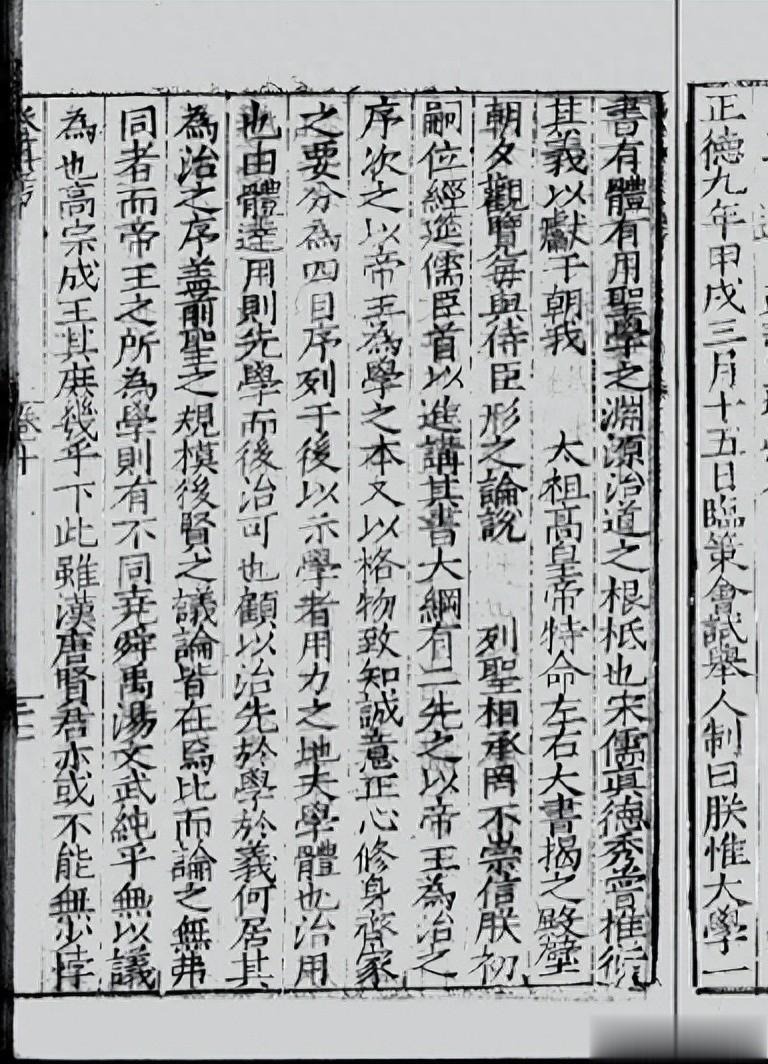 正德九年甲戌三月十五日臨策會試舉人制曰朕惟大學一
書有體有用聖學之淵源治道之根柢也宋儒真德秀嘗推衍
其義以獻于朝我 太祖高皇帝特命左右大書揭之殿壁
朝夕觀覽每與侍臣形之論說 列聖相承罔不崇信朕初
嗣位經筵儒臣首以進講其書大綱有二先之以帝王為治之
序次之以帝王為學之本又以格物致知誠意正心修身齊家
之要分為四目序列于後以示學者用力之地夫學體也治用
也由體達用則先學而後治可也顧以治先於學於義何居其
為治之序蓋前聖之規模後賢之議論皆在焉比而論之無弗
同者而帝王之所為學則有不同堯舜禹湯文武純乎無以議
為也高宗成王其庶幾乎下此雖漢唐賢君亦或不能無少悖